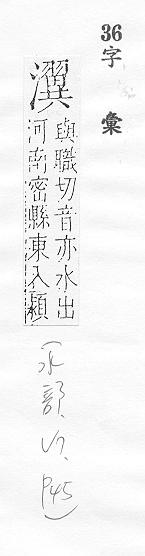 36
字彙
瀷
與職切音亦水出
河南密縣東入潁
(水部, P45)